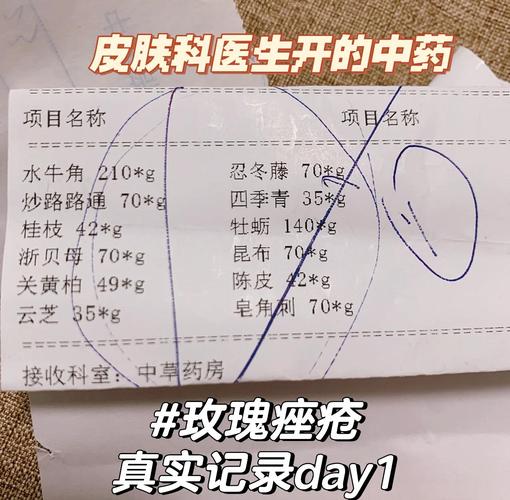 皮肤科医生开的中药
项目名称 项目名称
水牛角 210*g 忍冬藤 70*g
炒路路通 70*g 四季青 35*g
桂枝 42*g 牡蛎 140*g
浙贝母 70*g 昆布 70*g
关黄柏 49*g 陈皮 42*g
云芝 35*g 皂角刺 70*g
接收科室：中草药房
#玫瑰痤疮
真实记录day1